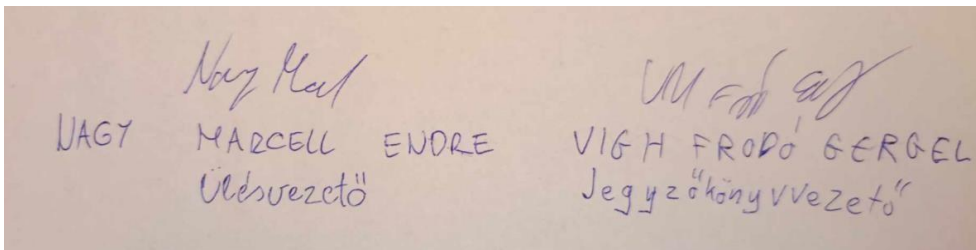 Nagy Marcell
NAGY MARCELL ENDRE VIGH FRODÓ GERGEL
Ülésvezető Jegyzőkönyvvezető